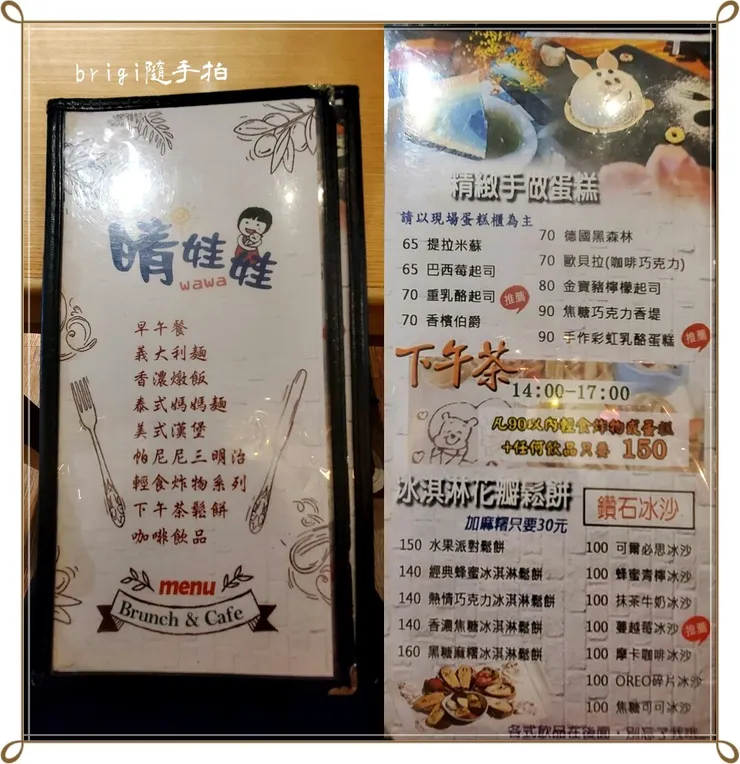 brigi隨手拍
晴娃娃
wawa
早午餐
義大利麵
香濃燉飯
泰式媽媽麵
美式漢堡
帕尼尼三明治
輕食炸物系列
下午茶鬆餅
咖啡飲品
menu
Brunch & Cafe
精緻手做蛋糕
請以現場蛋糕櫃為主
65 提拉米蘇
65 巴西莓起司
70 重乳酪起司 推薦
70 香檳伯爵
70 德國黑森林
70 歐貝拉(咖啡巧克力)
80 金寶豬檸檬起司
90 焦糖巧克力香堤
90 手作彩虹乳酪蛋糕 推薦
下午茶
14:00-17:00
凡90以內輕食炸物或蛋糕
+任何飲品只要 150
冰淇淋花瓣鬆餅
加麻糬只要30元
150 水果派對鬆餅
140 經典蜂蜜冰淇淋鬆餅
140 熱情巧克力冰淇淋鬆餅
140 香濃焦糖冰淇淋鬆餅
160 黑糖麻糬冰淇淋鬆餅
鑽石冰沙
100 可爾必思冰沙
100 蜂蜜青檸冰沙
100 抹茶牛奶冰沙
100 蔓越莓冰沙 推薦
100 摩卡咖啡冰沙
100 OREO碎片冰沙
100 焦糖可可冰沙
各式飲品在後面，別忘了我哦